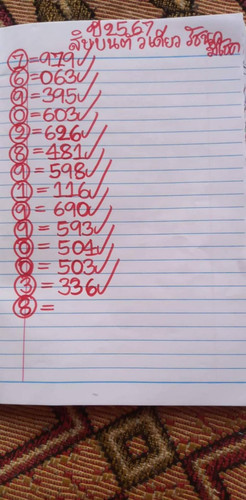 ปี2567
สิบบนต วิเดียว รัชนก
มีโชค
7=979✓
6=063✓
9=395✓
0=603✓
2=626✓
8=481✓
9=598✓
1=116✓
9=690✓
9=593✓
0=504✓
0=503✓
3=336✓
8=